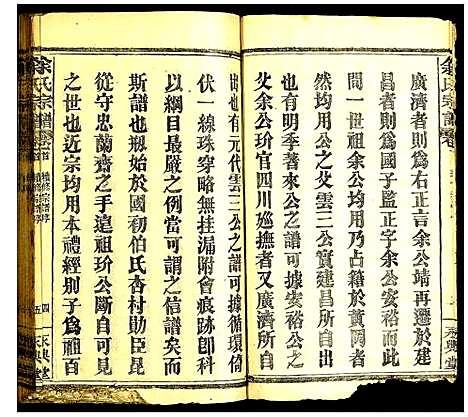 余氏宗譜
廣濟者則為右正言余公靖再遷於建
昌者則為國子監正字余公安裕而此
然均用公之父雲三公實建昌所自出
始祖余公均用乃占籍於黃岡者
父余公玠官四川巡撫者又廣濟所自
出也有明季著來公之譜可據
也有元代雲三公之譜可循環倚
伏一線珠穿略無挂漏附會痕跡卽科
以綱目最嚴之例當可謂之信譜矣而
斯譜也剏始於國初伯氏杏村勛臣昆
從守忠蘭齋之手遠祖玠公斷自可據
之世也近宗均用本禮經別子為祖百
永興堂
余氏宗譜
卷首
續修宗譜序
四
五
永興堂